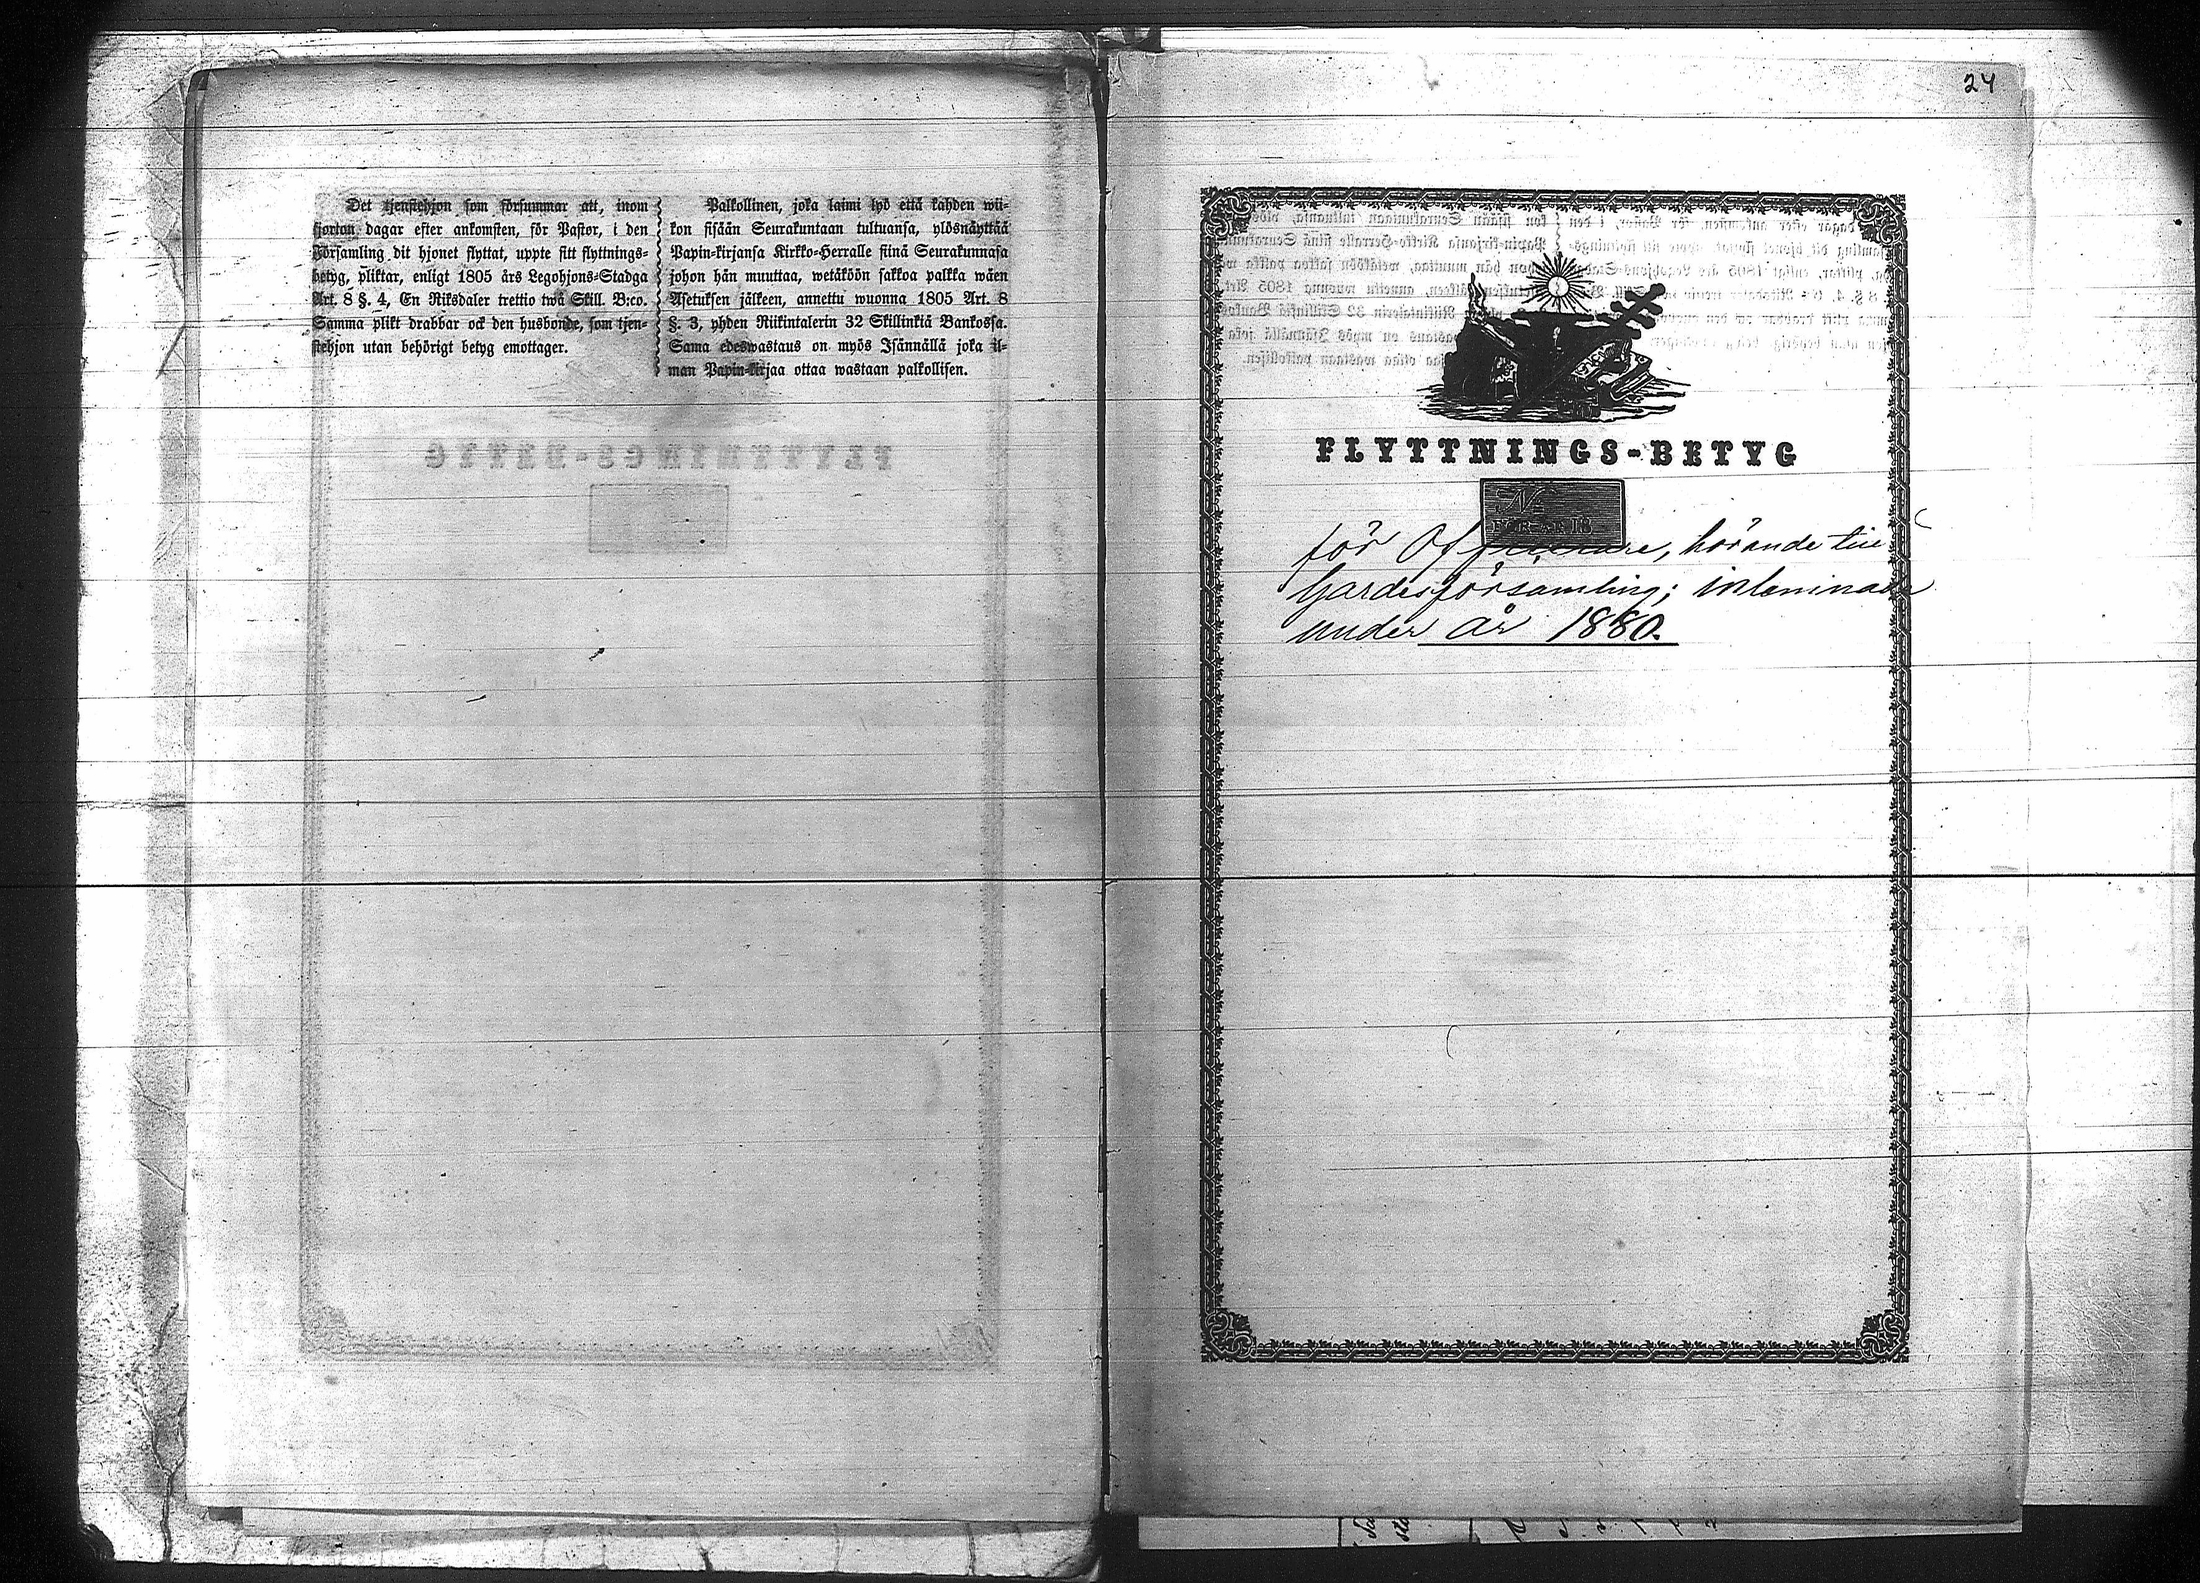 Det tjenstehjon som försummar att, inom
fjorton dagar efter ankomsten, för Pastor, i den
Församling dit hjonet flyttat, uppte sitt flyttnings-
betyg, pliktar, enligt 1805 års Legohjons-Stadga
Art. 8 §. 4, En Riksdaler trettio twå Skill. B:co.
Samma plikt drabbar ock den husbonde, som tjen-
stehjon utan behörigt betyg emottager.
Palkollinen, joka laimi lyö että kahden wii-
kon sisään Seurakuntaan tultuansa, ylösnäyttää
Papin-kirjansa Kirkko-Herralle siinä Seurakunnasa
johon hän muuttaa, wetäköön sakkoa palkka wäen
Asetuksen jälkeen, annettu wuonna 1805 Art. 8
§. 3, yhden Riikintalerin 32 Skillinkiä Bankossa.
Sama edeswastaus on myös Isännällä joka il-
man Papin-kirjaa ottaa wastaan palkollisen.
24
FLYTTNINGS-BETYG
No
FÖR ÅR 18
för hörande till
Gardesförsamling; inlemnade
under år 1880.